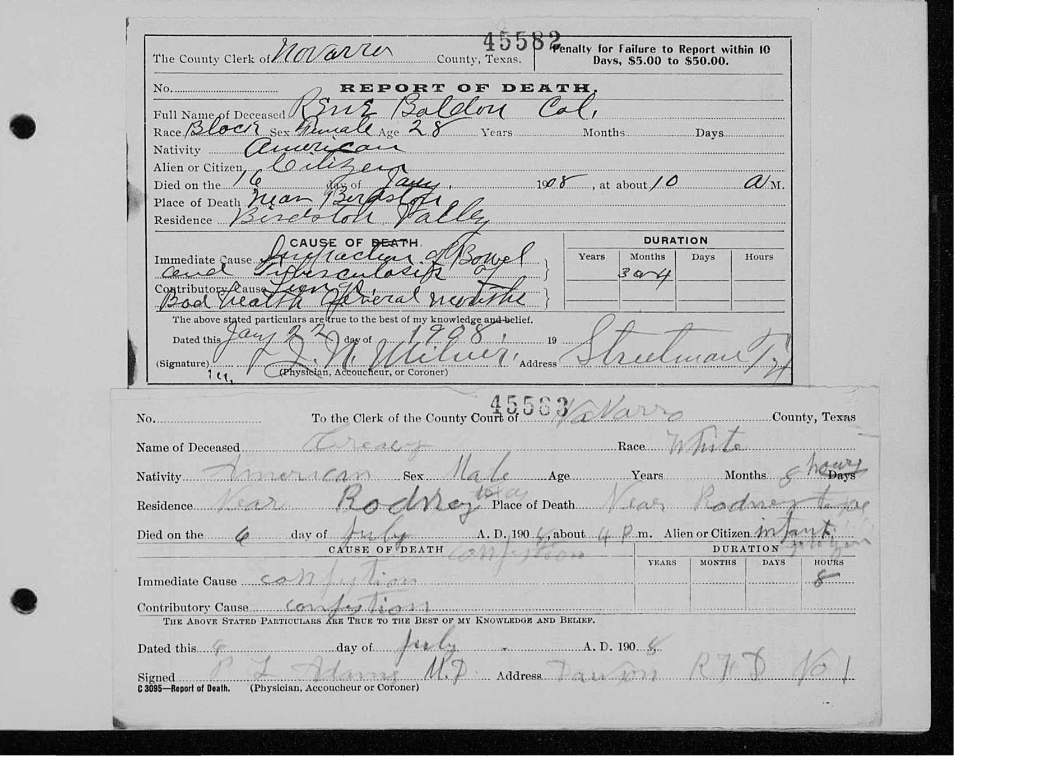 45582
The County Clerk of Novarro County, Texas.
Penalty for Failure to Report within 10 Days, $5.00 to $50.00.
No.
REPORT OF DEATH.
Full Name of Deceased Rene Boldon Col.
Race Black Sex Female Age 28 Years Months Days
Nativity American
Alien or Citizen Citizen
Died on the 16 day of Jany. 1908, at about 10 A M.
Place of Death Near Birdston
Residence Birdston Valley
CAUSE OF DEATH. DURATION
Years Months Days Hours
Immediate Cause of Bowel
and Tuberculosis of 3 or 4
Contributory Cause Lungs
Bad health General months
The above stated particulars are true to the best of my knowledge and belief.
Dated this Jany 22 day of 1908. 19
(Signature) J. N. Milner. Address Streetman Tx
(Physician, Accoucheur, or Coroner)
45583
No. To the Clerk of the County Court of NaVarro County, Texas
Name of Deceased Race White
Nativity American Sex Male Age Years Months 8 hours Days
Residence Near Rodney Place of Death Near Rodney
Died on the 6 day of July A. D. 1908, about 4 P. m. Alien or Citizen infant
CAUSE OF DEATH DURATION
YEARS MONTHS DAYS HOURS
Immediate Cause 8
Contributory Cause
THE ABOVE STATED PARTICULARS ARE TRUE TO THE BEST OF MY KNOWLEDGE AND BELIEF.
Dated this day of July A. D. 1908
Signed L Adams M.D Address Dawson R F D No 1
C 3095—Report of Death. (Physician, Accoucheur or Coroner)